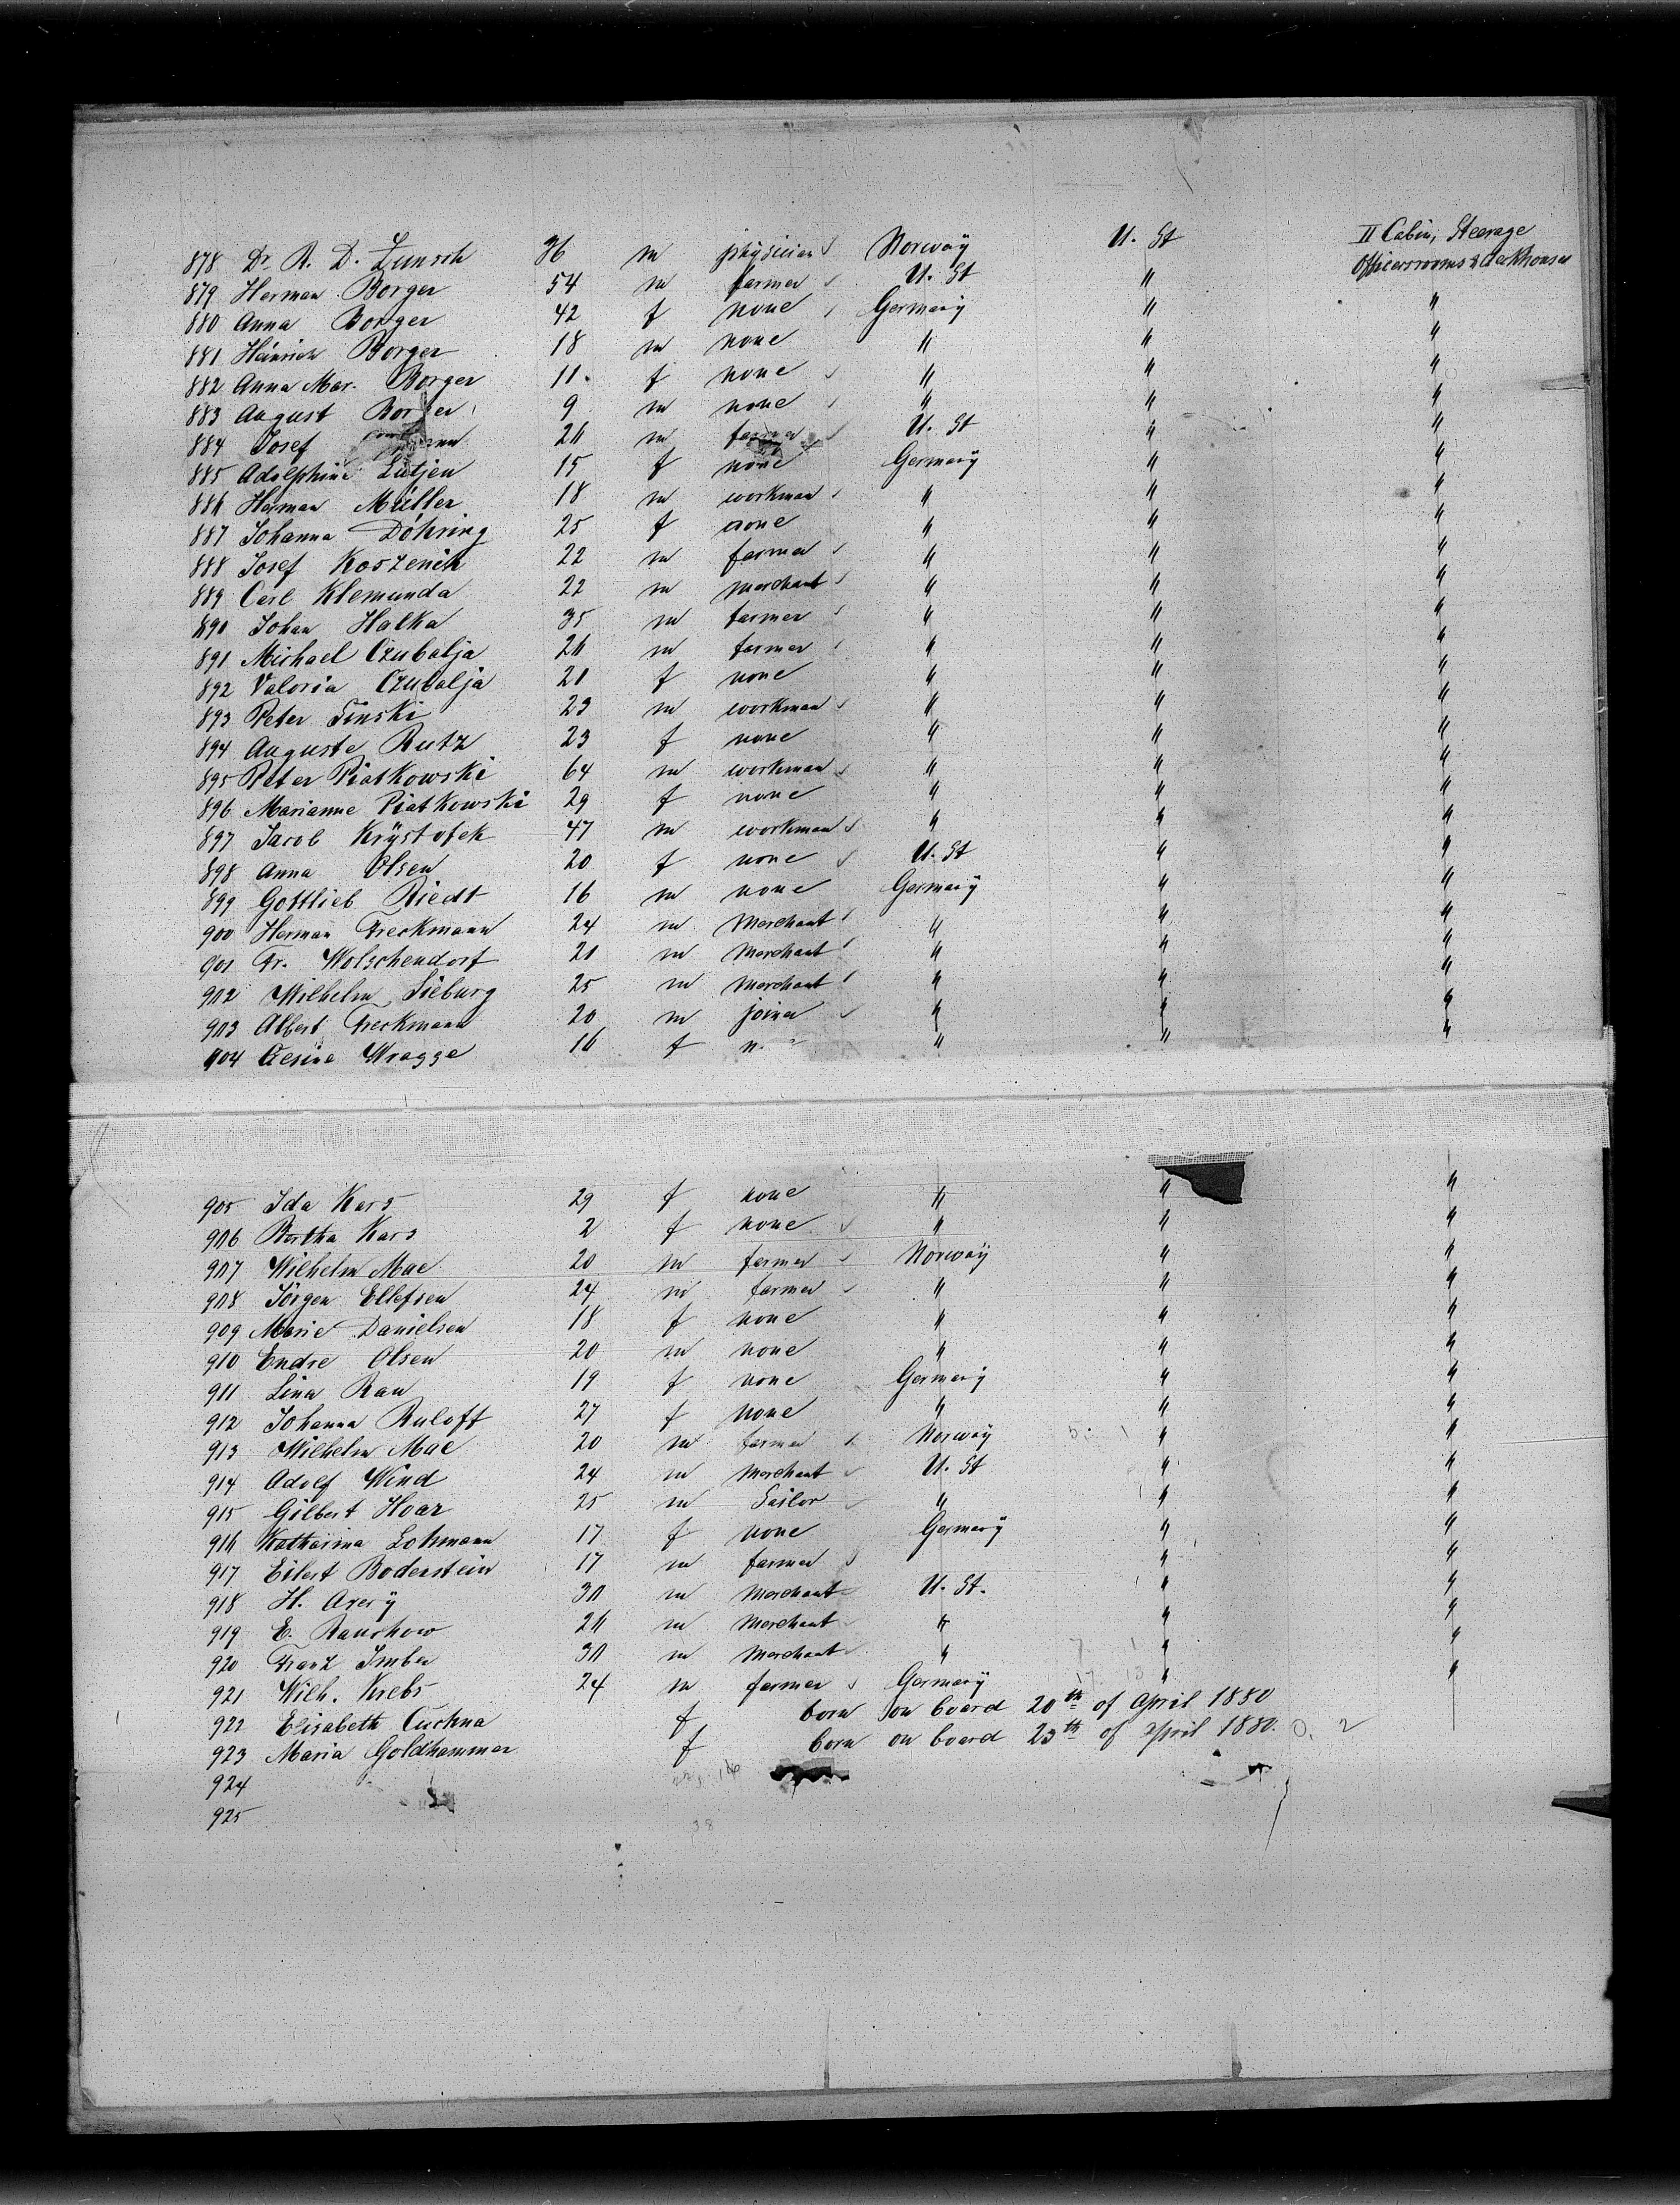 878 Dr. R. D. Zunsch 36 m physician Norway U. St II Cabin, Steerage
Officersrooms & deckhouses
879 Herman Borger 54 m farmer U. St "
880 Anna Borger 42 f none Germany " "
881 Heinrich Borger 18 m none " " "
882 Anna Mar. Borger 11 f none " " "
883 August Borger 9 m none " " "
884 Josef 26 m farmer U. St " "
885 Adolphine Lütjen 15 f none Germany " "
886 Herman Müller 18 m workman " " "
887 Johanna Döhring 25 f none " " "
888 Josef Koszenik 22 m farmer " " "
889 Carl Klemunda 22 m merchant " " "
890 Johan Halka 35 m farmer " " "
891 Michael Czubalja 26 m farmer " " "
892 Valoria Czubalja 21 f none " " "
893 Peter Sinski 23 m workman " " "
894 Auguste Rutz 23 f none " " "
895 Peter Piatkowski 64 m workman " " "
896 Marianne Piatkowski 29 f none " " "
897 Jacob Krÿstofek 47 m workman " " "
898 Anna Olsen 20 f none U. St " "
899 Gottlieb Riedt 16 m none Germany " "
900 Herman Freckmann 24 m Merchant " " "
901 Fr. Wolschendorf 21 m Merchant " " "
902 Wilhelm Sieburg 25 m Merchant " " "
903 Albert Freckmann 20 m joiner " " "
904 Gesine Wragge 16 f n. " " "
905 Ida Kars 29 f none " " "
906 Bertha Kars 2 f none " " "
907 Wilhelm Mae 20 m farmer Norway " "
908 Jörgen Ellefsen 24 m farmer " " "
909 Marie Danielsen 18 f none " " "
910 Endre Olsen 20 m none " " "
911 Lina Rau 19 f none Germany " "
912 Johanna Ruloft 27 f none " " "
913 Wilhelm Mae 20 m farmer Norway " "
914 Adolf Wind 24 m Merchant U. St " "
915 Gilbert Hoar 25 m Sailor " " "
916 Katharina Lohmann 17 f none Germany " "
917 Eilert Bodenstein 17 m farmer " "
918 H. Averÿ 30 m Merchant U. St. " "
919 E. Rauchow 26 m Merchant " " "
920 Franz Imber 30 m Merchant " " "
921 Wilh. Krebs 24 m farmer Germany " "
922 Elisabeth Cuchna f born on board 20th of April 1880
923 Maria Goldhammer f born on board 23th of April 1880.
924
925